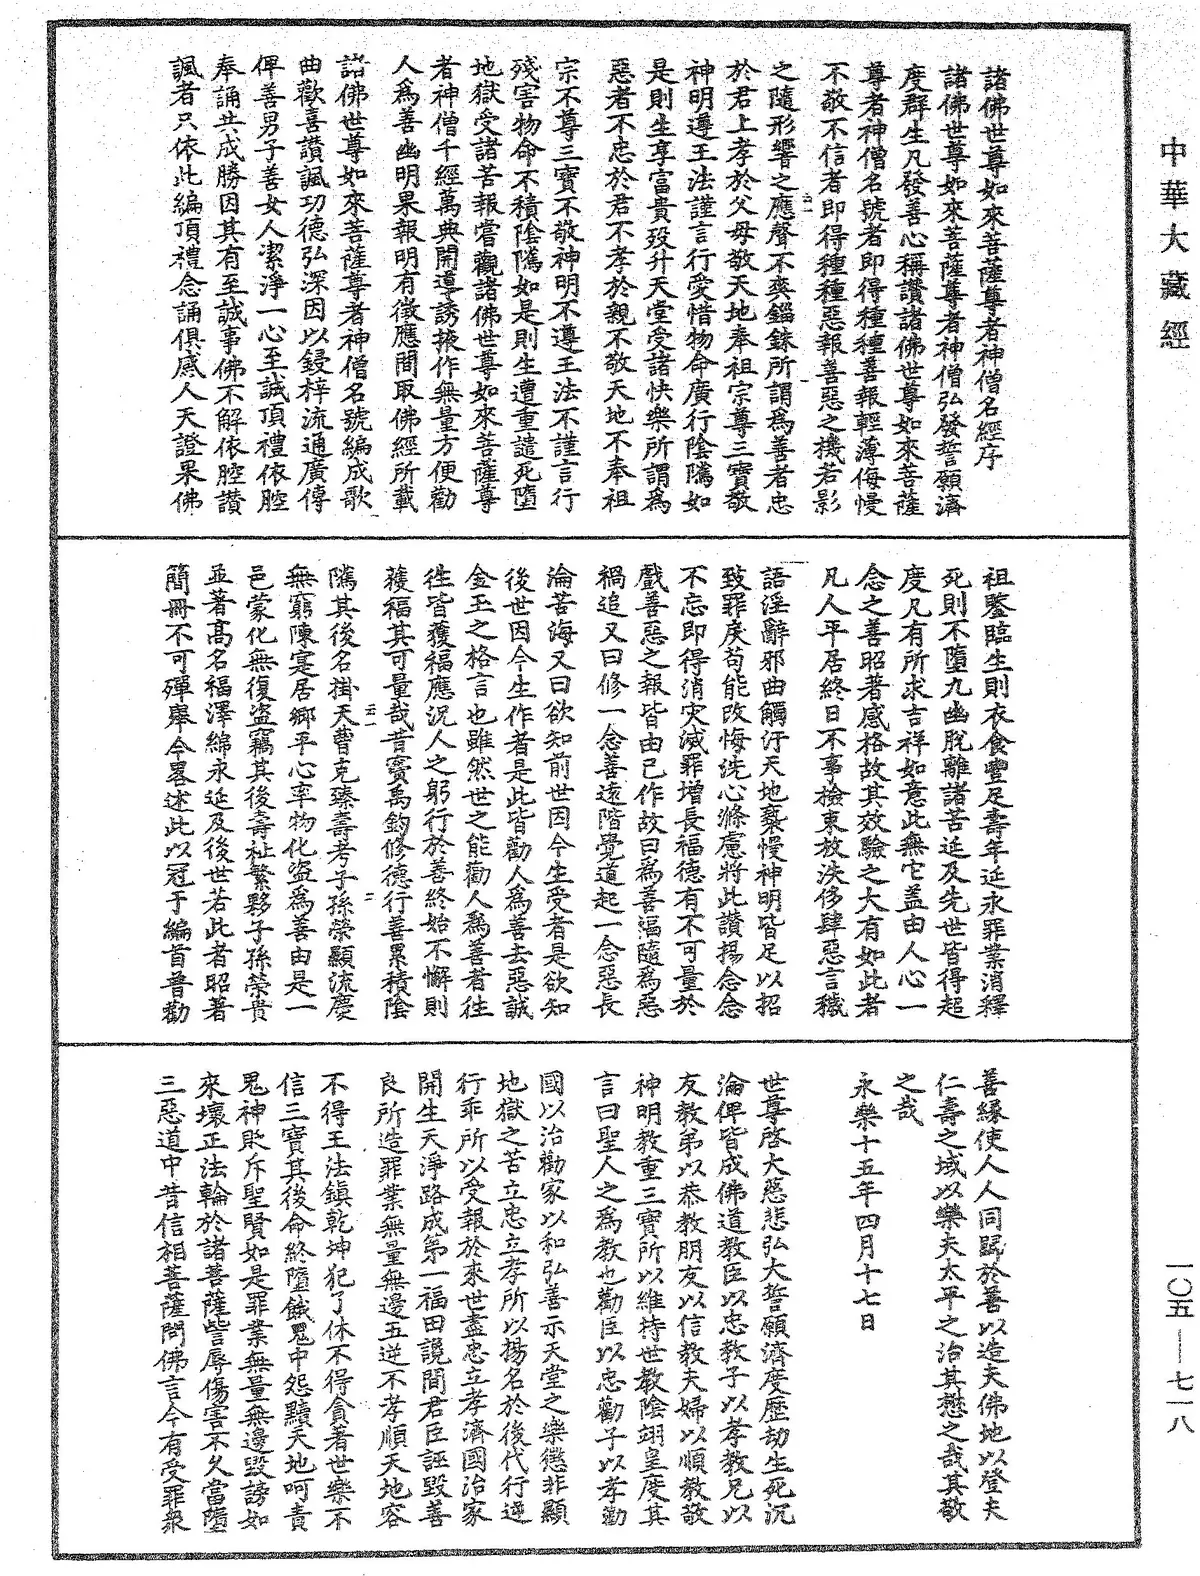 中華大藏經
諸佛世尊如來菩薩尊者神僧名經序
諸佛世尊如來菩薩尊者神僧弘發誓願濟
度群生凡發善心稱讚諸佛世尊如來菩薩
尊者神僧名號者即得種種善報輕薄侮慢
不敬不信者即得種種惡報善惡之機若影
之隨形響之應聲不爽錙銖所謂為善者忠
於君上孝於父母敬天地奉祖宗尊三寶敬
神明遵王法謹言行愛惜物命廣行陰隲如
是則生享富貴歿升天堂受諸快樂所謂為
惡者不忠於君不孝於親不敬天地不奉祖
宗不尊三寶不敬神明不遵王法不謹言行
殘害物命不積陰隲如是則生遭重譴死墮
地獄受諸苦報嘗觀諸佛世尊如來菩薩尊
者神僧千經萬典開導誘掖作無量方便勸
人為善幽明果報明有徵應間取佛經所載
諸佛世尊如來菩薩尊者神僧名號編成歌
曲歡喜讚諷功德弘深因以鋟梓流通廣傳
俾善男子善女人潔淨一心至誠頂禮依腔
奉誦共成勝因其有至誠事佛不解依腔讚
諷者只依此編頂禮念誦俱感人天證果佛
祖鑒臨生則衣食豐足壽年延永罪業消釋
死則不墮九幽脫離諸苦延及先世皆得超
度凡有所求吉祥如意此無它蓋由人心一
念之善昭著感格故其效驗之大有如此者
凡人平居終日不事檢束放泆侈肆惡言穢
語淫辭邪曲觸汙天地褻慢神明皆足以招
致罪戾苟能改悔洗心滌慮將此讚揚念念
不忘即得消灾滅罪增長福德有不可量於
戲善惡之報皆由己作故曰為善福隨為惡
禍追又曰修一念善遠階覺道起一念惡長
淪苦海又曰欲知前世因今生受者是欲知
後世因今生作者是此皆勸人為善去惡誠
金玉之格言也雖然世之能勸人為善者往
往皆獲福應況人之躬行於善終始不懈則
獲福其可量哉昔竇禹鈞修德行善累積陰
隲其後名掛天曹克臻壽考子孫榮顯流慶
無窮陳寔居鄉平心率物化盜為善由是一
邑蒙化無復盜竊其後壽祉繁夥子孫榮貴
並著高名福澤綿永延及後世若此者昭著
簡冊不可殫舉今畧述此以冠于編首普勸
善緣使人人同歸於善以造夫佛地以登夫
仁壽之域以樂夫太平之治其懋之哉其敬
之哉
永樂十五年四月十七日
世尊啓大慈悲弘大誓願濟度歷劫生死沉
淪俾皆成佛道教臣以忠教子以孝教兄以
友教弟以恭教朋友以信教夫婦以順教敬
神明教重三寶所以維持世教陰翊皇度其
言曰聖人之為教也勸臣以忠勸子以孝勸
國以治勸家以和弘善示天堂之樂懲非顯
地獄之苦立忠立孝所以揚名於後代行逆
行乖所以受報於來世盡忠立孝濟國治家
開生天淨路成第一福田讒間君臣誣毀善
良所造罪業無量無邊五逆不孝順天地容
不得王法鎮乾坤犯了休不得貪著世樂不
信三寶其後命終墮餓鬼中怨黷天地呵責
鬼神欺斥聖賢如是罪業無量無邊毀謗如
來壞正法輪於諸菩薩訾辱傷害不久當墮
三惡道中昔信相菩薩問佛言今有受罪衆
一〇五—七一八